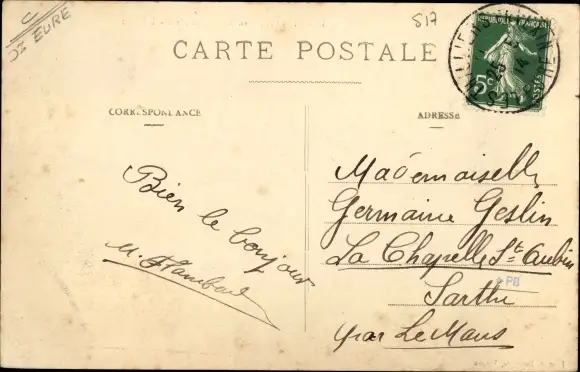 C
Dt EURE
517
CARTE POSTALE
RÉPUBLIQUE FRANÇAISE
5c
POSTES
25 - 5
14
CORRESPONDANCE
ADRESSE
Bien le bonjour
Mademoiselle
Germaine Geslin
La Chapelle St-Aubin
Sarthe
par Le Mans